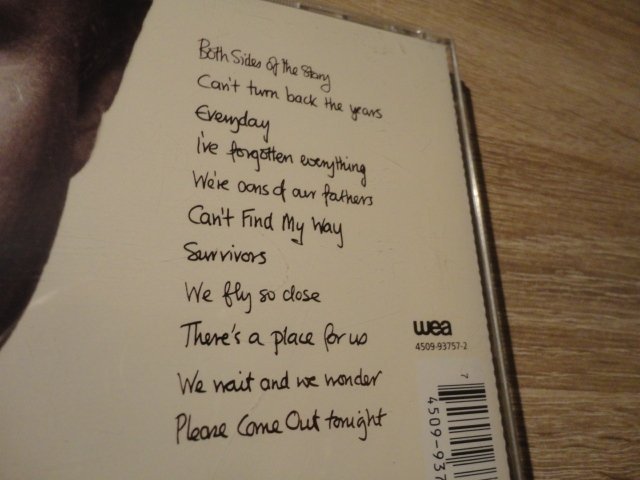 Both Sides of the Story
Can't turn back the years
Everyday
I've forgotten everything
We're sons of our fathers
Can't Find My Way
Survivors
We fly so close
There's a place for us
We wait and we wonder
Please Come Out tonight
wea
4509-93757-2
7
4509-937